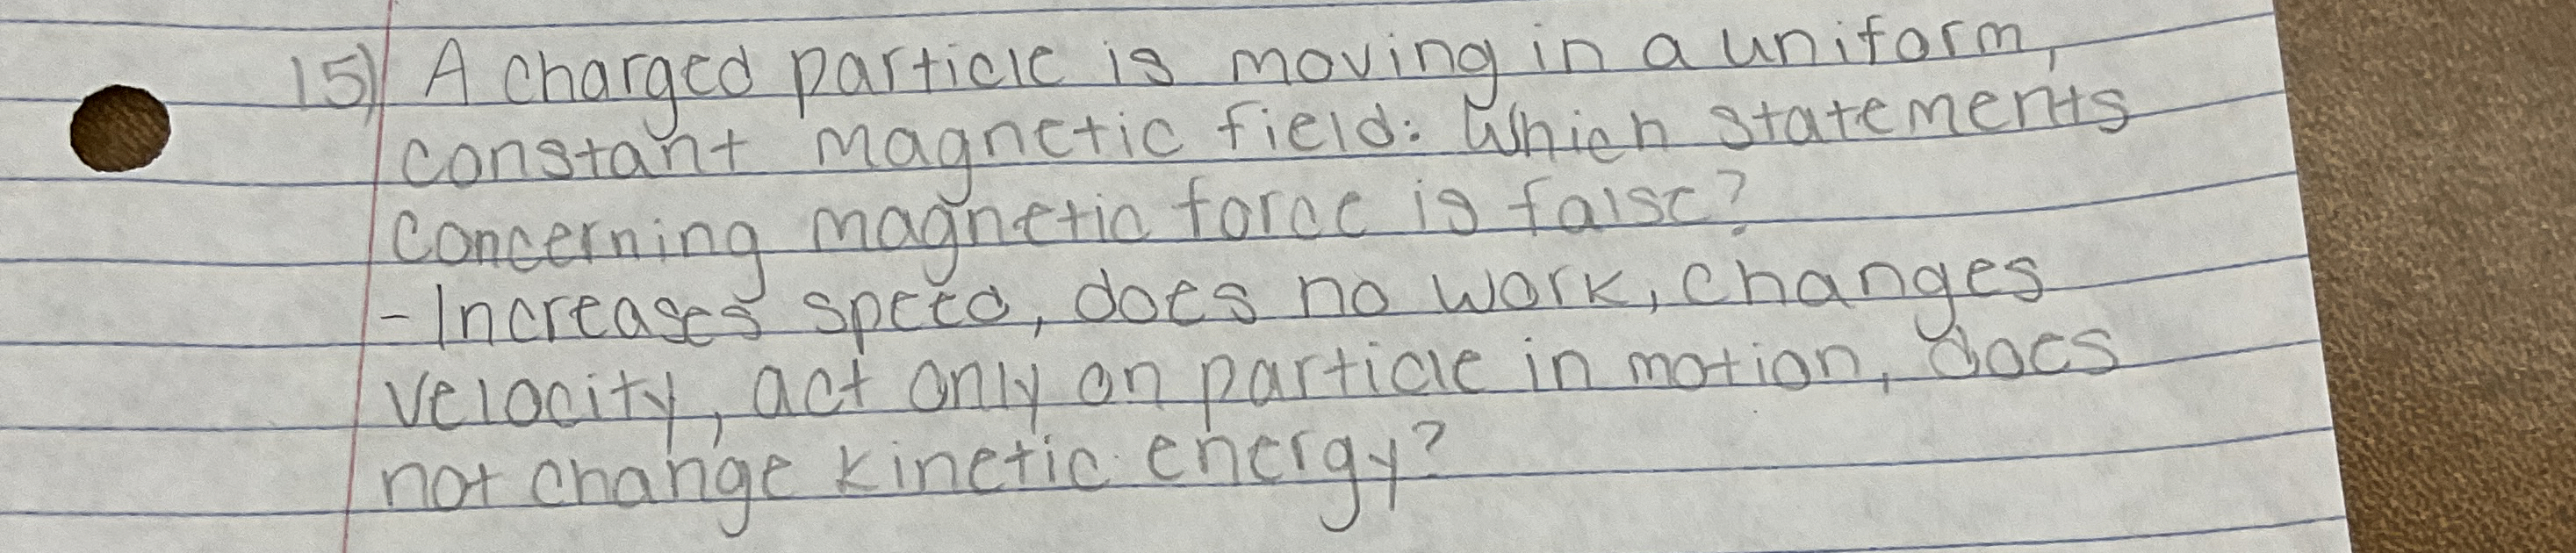 15) A charged particle is moving in a uniform,
constant magnetic field: Which statements
concerning magnetic force is false?
- Increases speed, does no work, changes
velocity, act only on particle in motion, does
not change kinetic energy?